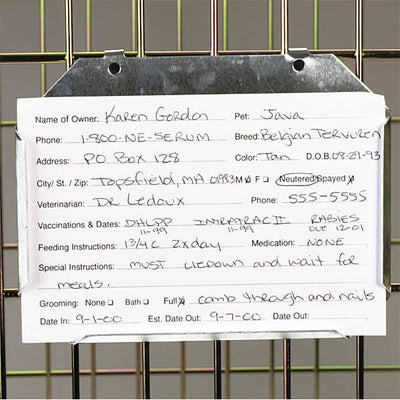 Name of Owner: Karen Gordon Pet: Java
Phone: 1-800-NE-SERUM Breed: Belgian Tervuren
Address: PO Box 128 Color: Tan D.O.B. 08-29-93
City/ St. / Zip: Topsfield, MA 01983 M F Neutered/Spayed
Veterinarian: DR Ledoux Phone: 555-5555
Vaccinations & Dates: DHLPP 11-99 INTRATRAC II 11-99 RABIES DUE 12-01
Feeding Instructions: 1 3/4 C 2xday Medication: NONE
Special Instructions: MUST LIEDOWN and wait for
meals.
Grooming: None Bath Full comb through and nails
Date In: 9-1-00 Est. Date Out: 9-7-00 Date Out: